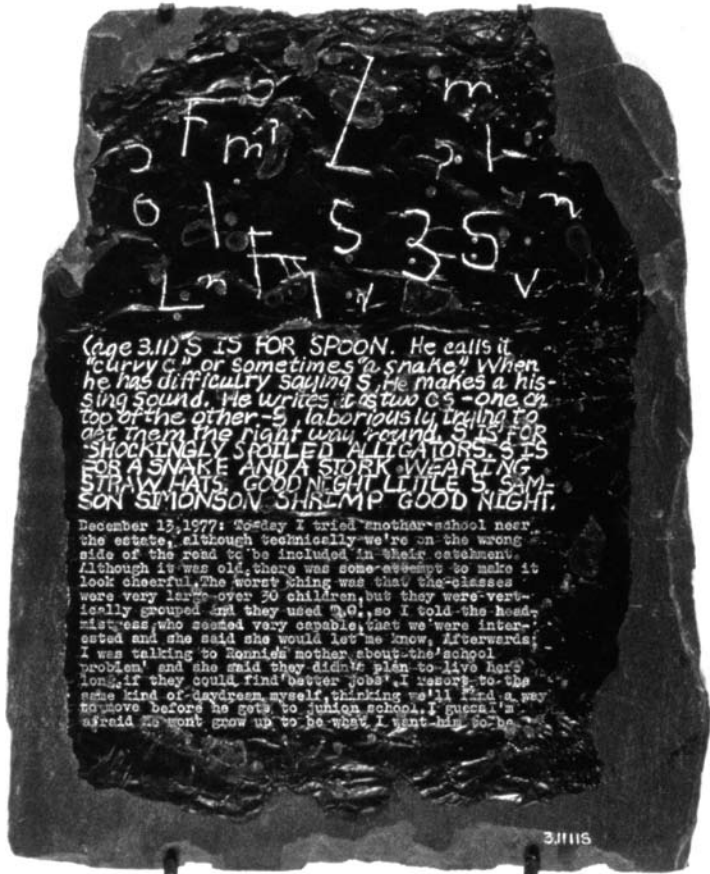 o L m
F m?
ɔ ? -
o l S 3 S n
L n F l v v
(age 3.11) S IS FOR SPOON. He calls it
"curvy C" or sometimes "a snake". When
he has difficulty saying S, He makes a his-
sing sound. He writes it as two Cs - one on
top of the other - S, laboriously trying to
get them the right way 'round. S IS FOR
SHOCKINGLY SPOILED ALLIGATORS. S IS
FOR A SNAKE AND A STORK WEARING
STRAW HATS. GOOD NIGHT LITTLE S. SAM-
SON SIMONSON SHRIMP GOOD NIGHT.
December 13, 1977: Today I tried another school near
the estate, although technically we're on the wrong
side of the road to be included in their catchment.
Although it was old, there was some attempt to make it
look cheerful. The worst thing was that the classes
were very large - over 30 children, but they were vert-
ically grouped and they used so I told the head-
mistress, who seemed very capable, that we were inter-
ested and she said she would let me know. Afterwards,
I was talking to Ronnie's mother about the 'school
problem' and she said they didn't plan to live here
long, if they could find 'better jobs'. I resort to the
same kind of daydream myself, thinking we'll find a way
to move before he gets to junion school. I guess I'm
afraid he wont grow up to be what I want him to be
3.1111S